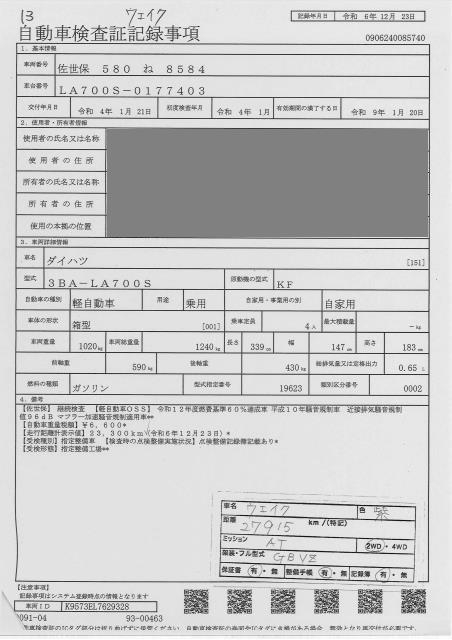 13 ウェイク
記録年月日 令和 6年12月 23日
自動車検査証記録事項
0906240085740
1．基本情報
車両番号 佐世保 580 ね 8584
車台番号 LA700S-0177403
交付年月日 令和 4年 1月 21日 初度検査年月 令和 4年 1月 有効期間の満了する日 令和 9年 1月 20日
2．使用者・所有者情報
使用者の氏名又は名称
使用者の住所
所有者の氏名又は名称
所有者の住所
使用の本拠の位置
3．車両詳細情報
車名 ダイハツ [151]
型式 3BA-LA700S 原動機の型式 KF
自動車の種別 軽自動車 用途 乗用 自家用・事業用の別 自家用
車体の形状 箱型 [001] 乗車定員 4人 最大積載量 -kg
車両重量 1020kg 車両総重量 1240kg 長さ 339cm 幅 147cm 高さ 183cm
前軸重 590kg 後軸重 430kg 総排気量又は定格出力 0.65 L
燃料の種類 ガソリン 型式指定番号 19623 類別区分番号 0002
4．備考
【佐世保】 継続検査 【軽自動車OSS】 令和12年度燃費基準60%達成車 平成10年騒音規制車 近接排気騒音規制
値96dB マフラー加速騒音規制適用車**
【自動車重量税額】¥6,600*
【走行距離計表示値】23,300km(令和6年12月23日)*
【受検種別】指定整備車 【検査時の点検整備実施状況】点検整備記録簿記載あり*
【受検形態】指定整備工場**
車名 ウェイク 色 紫
距離 27915 km/(特記)
ミッション AT 2WD・4WD
架装・フル型式 GBVZ
保証書 有・無 整備手帳 有・無 記録簿 有・無
【注意事項】
記録事項はシステム登録時点の情報となります
車両ID K9573EL7629328
0091-04 93-00463